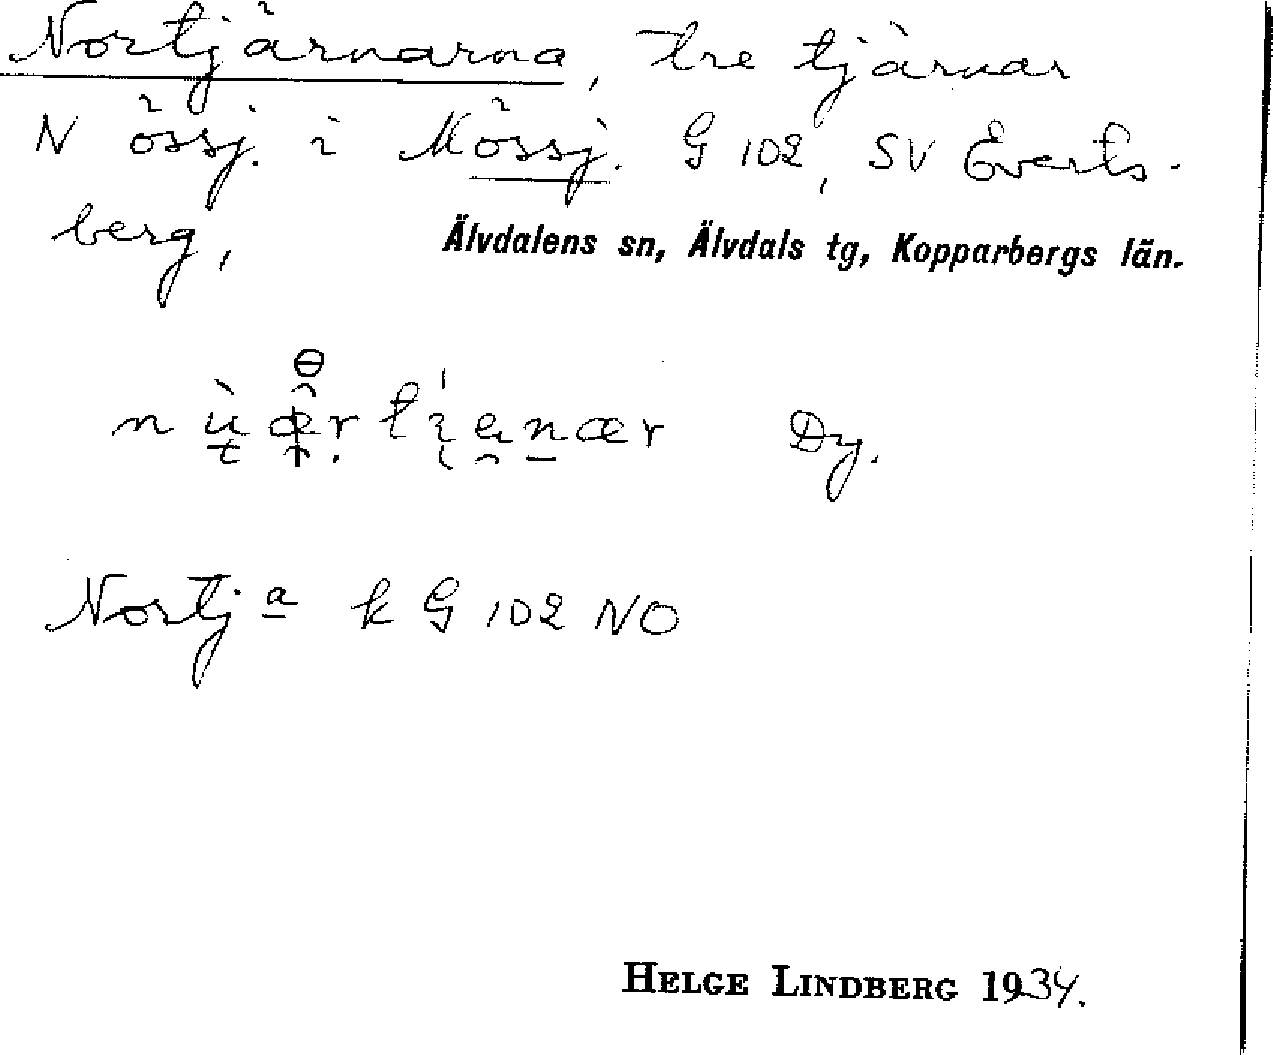 Nortjärnarna, tre tjärnar
N össj. i Mössj. G 102, SV Everts-
berg,
Älvdalens sn, Älvdals tg, Kopparbergs län.
Dy.
Nortja k G 102 NO
HELGE LINDBERG 1934.